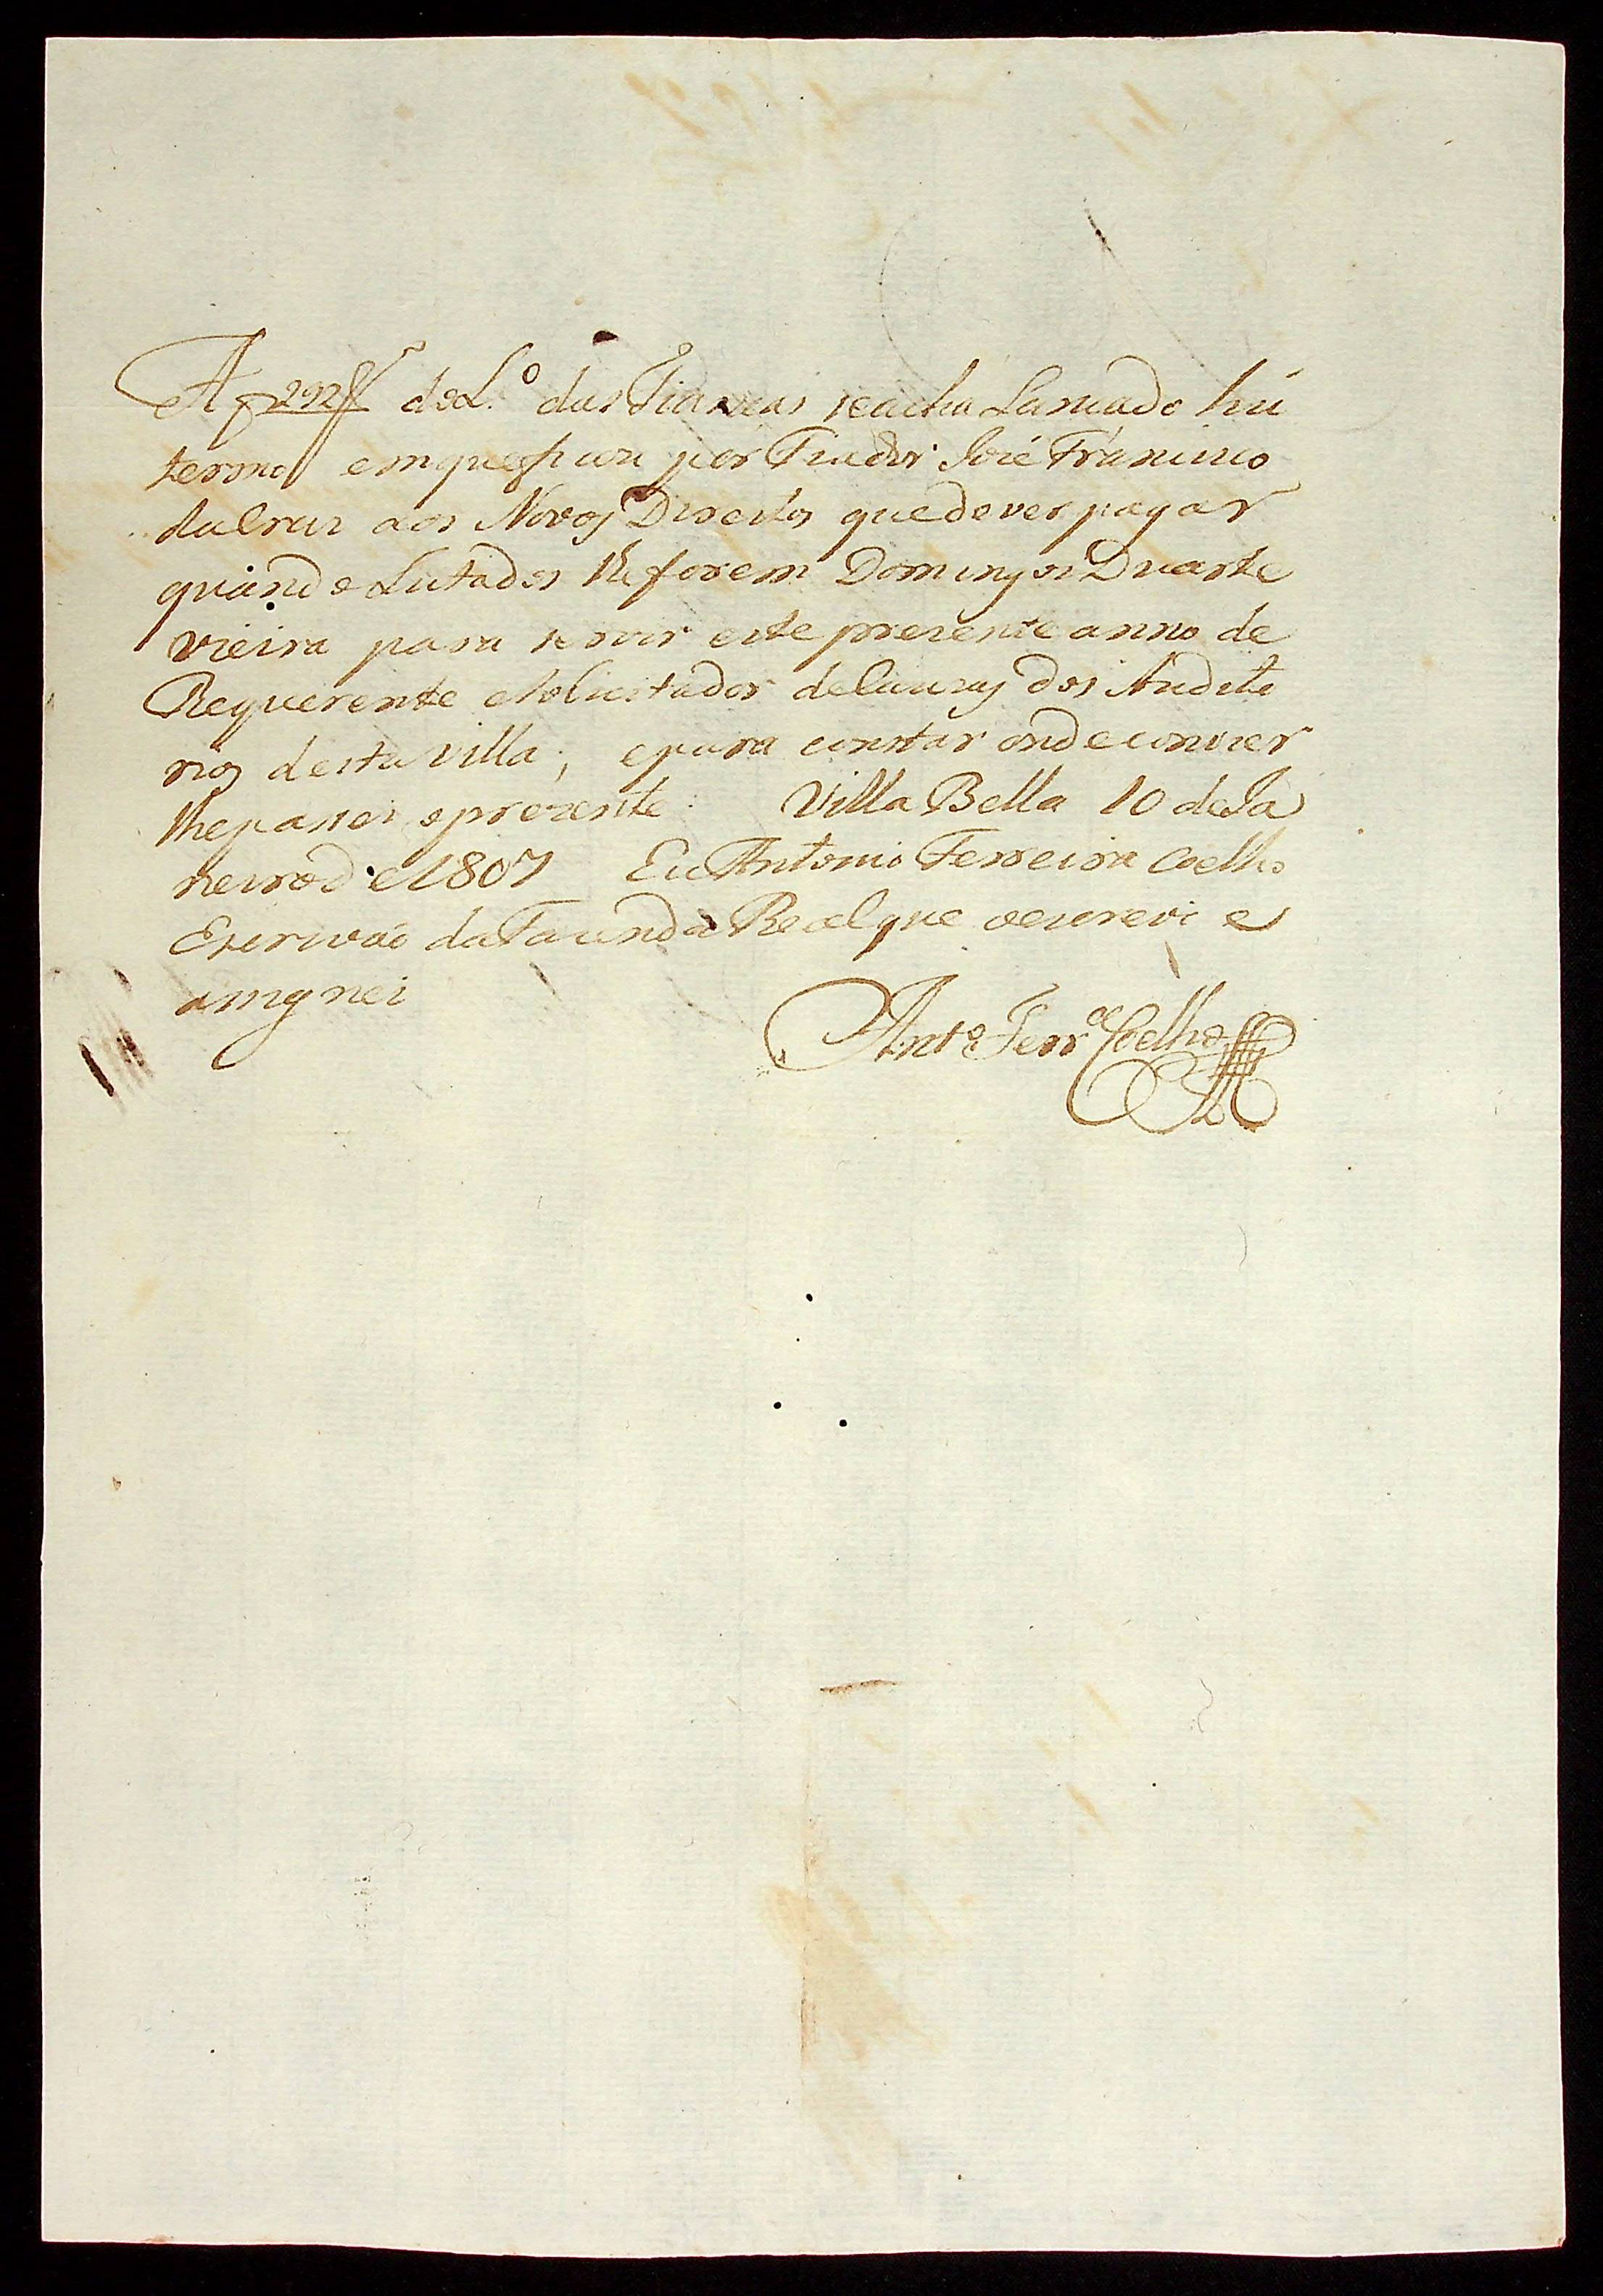 A f 292 do L.º das Fiansas seacha Lansado hú
termo emque fica por Fiador José Francisco
dalruz aos Novos Direitos quedever pagar
quando Lutados lhe forem Domingos Duarte
Vieira para servir este prezente anno de
Requerente eSolicitador deCauzas dos Audito
rios desta Villa; epara constar ondeconvier
lhepassei oprezente: Villa Bella 10 deJa
neirode1807 Eu Antonio Ferreira Coelho
Escrivão daFazenda Real que oescrevi e
asignei
Antº Ferrª Coelho